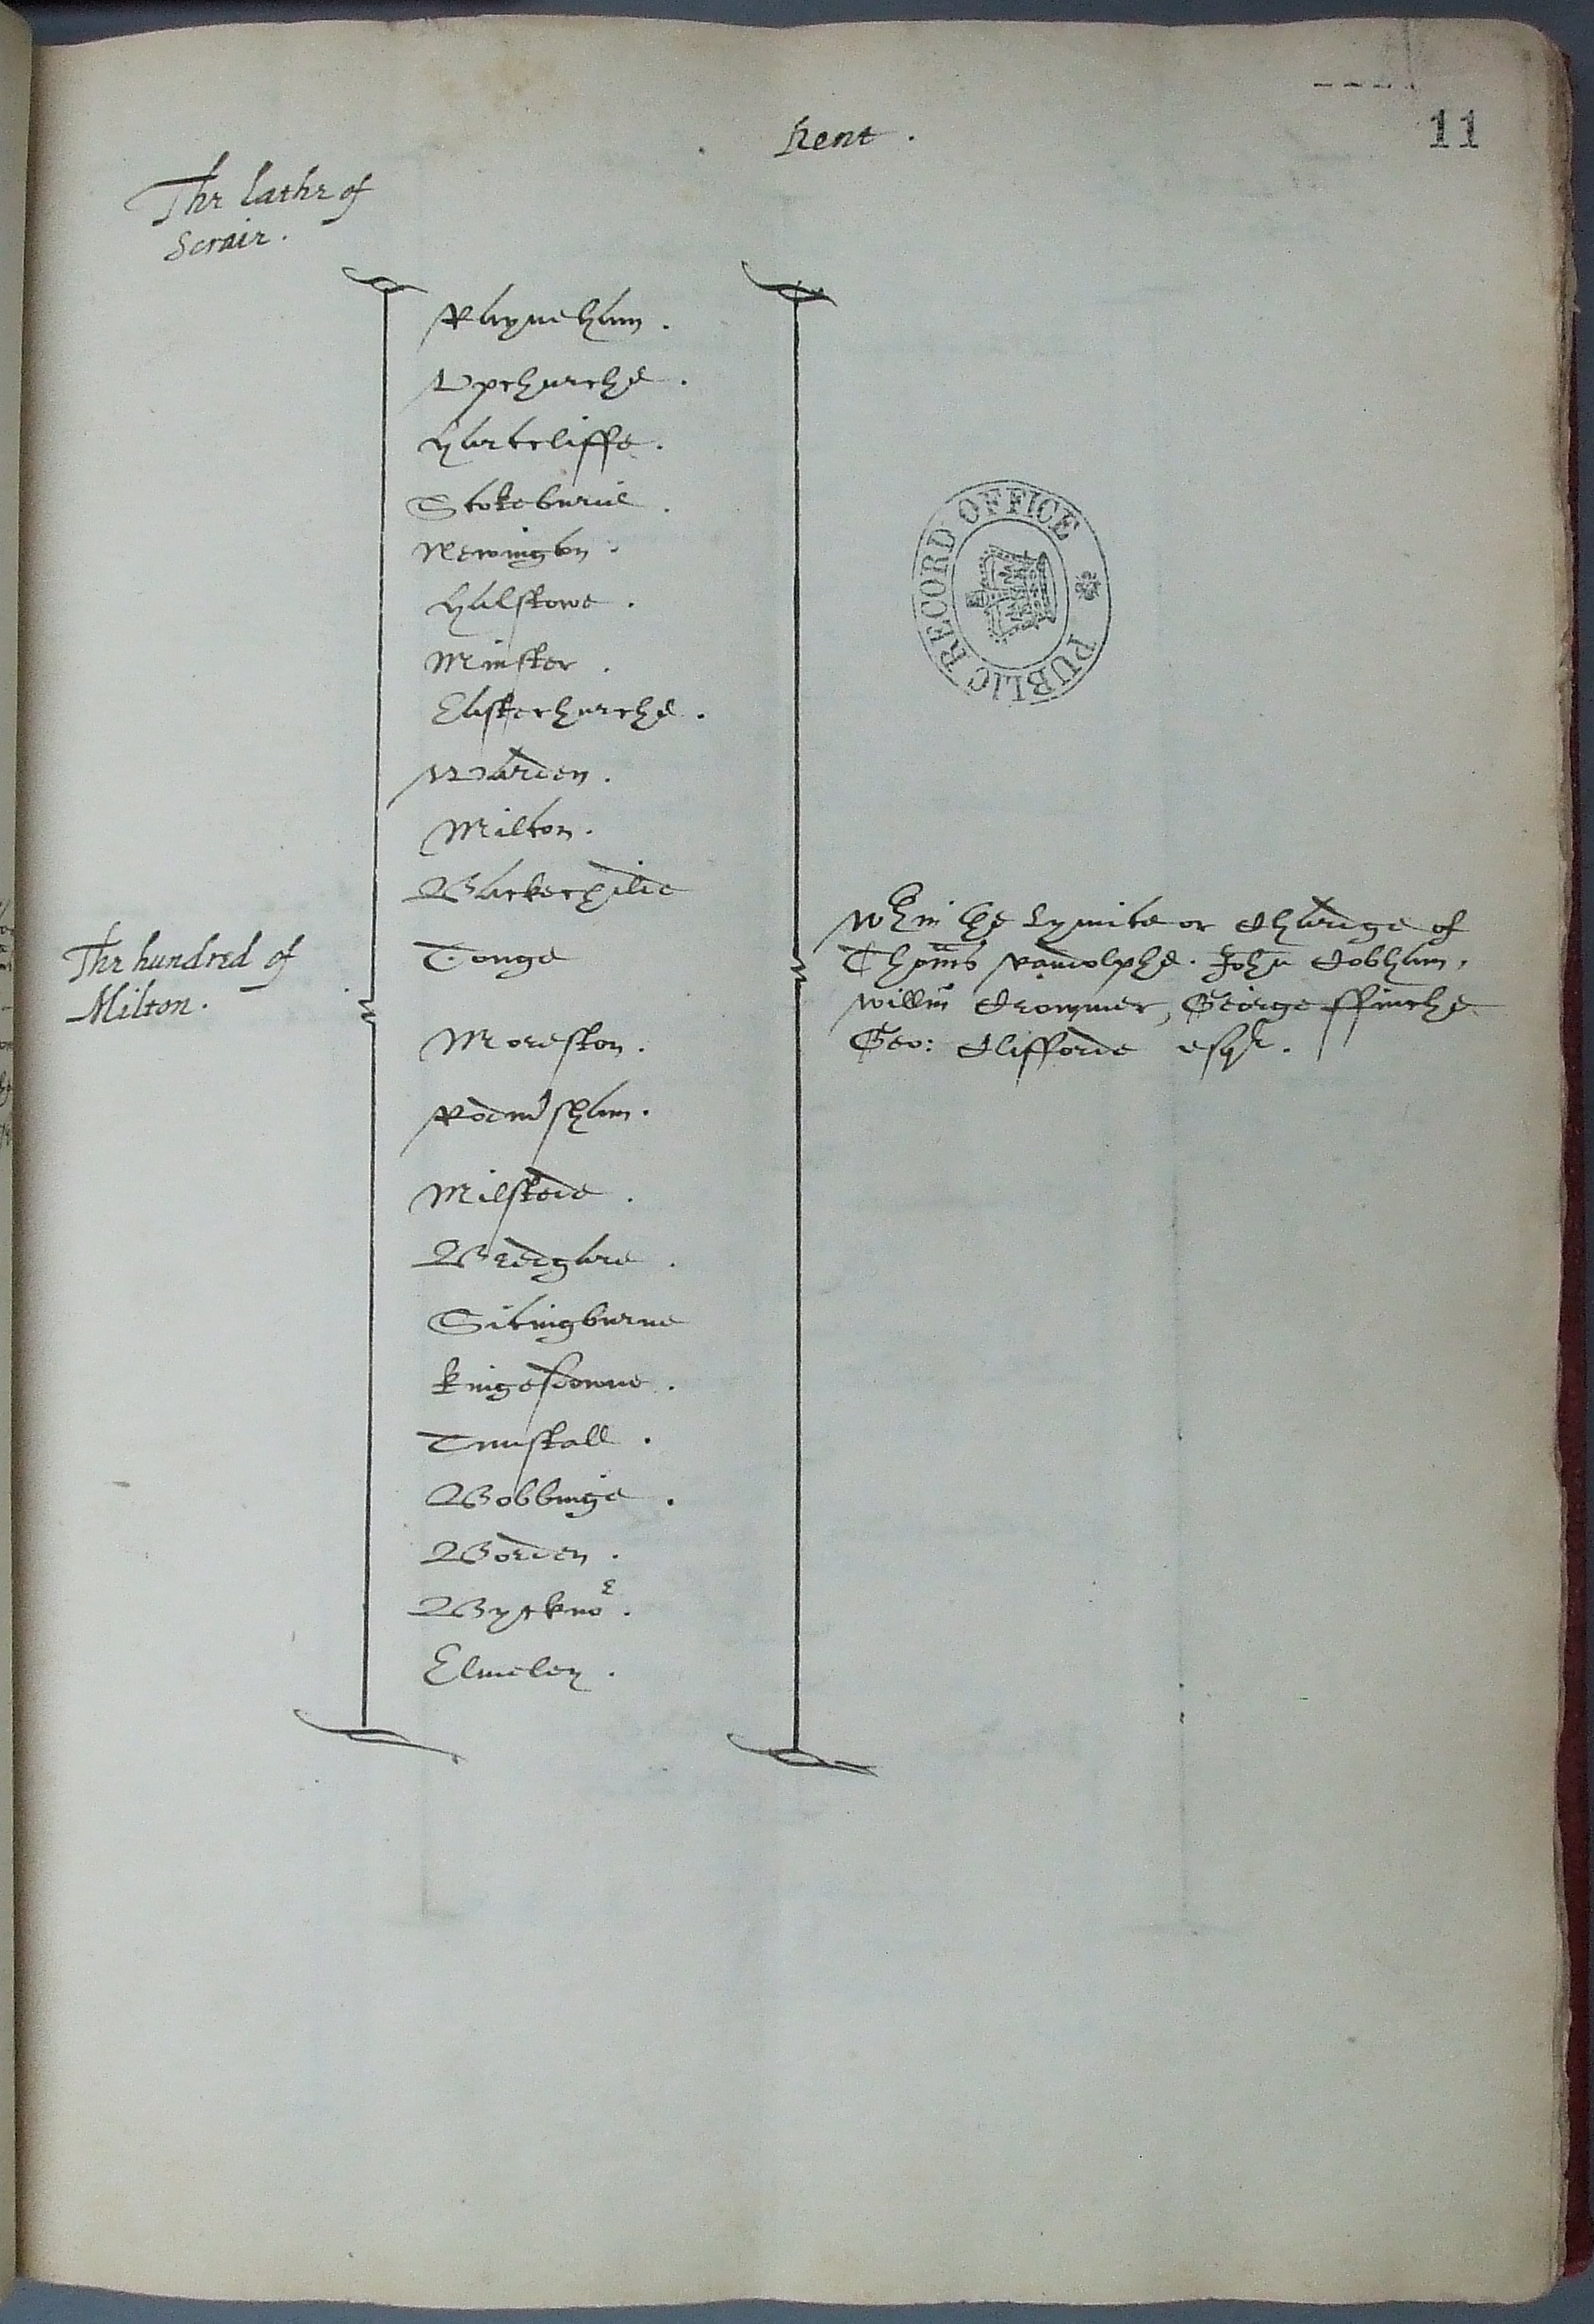 Kent .
11
The lathe of
Scraie .
Rayneham .
Upchurche .
Hartcliffe .
Stokeburie .
Newington .
Halstowe .
Minster .
Eastechurche .
Warden .
Milton .
The hundred of
Milton .
Tonge
Moreston .
Rodm'sham .
Milstede .
Bredgare .
Sitingburne
Kingesdowne .
Tunstall .
Bobbinge .
Borden .
Byckno^r .
Elmeley .
W^thin the Lymite or Chardge of
Thom̄s Randolphe . John Cobham ,
Willm̄ Crowmer , George ffinche
Geo: Clifforde esq^r .
PUBLIC RECORD OFFICE